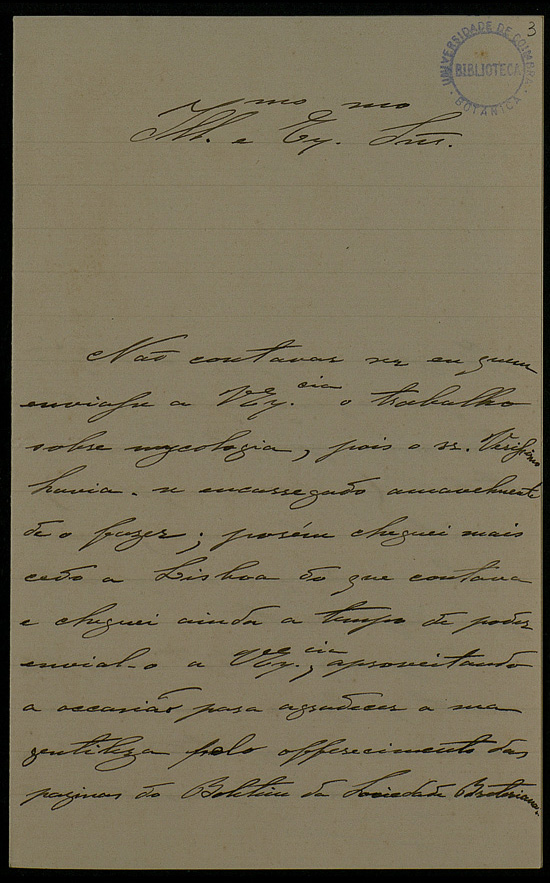 3
UNIVERSIDADE DE COIMBRA
BIBLIOTECA
BOTANICA
Ill.mo e Ex.mo Snr.
Não contava ser eu quem
enviasse a V. Ex.cia o trabalho
sobre mycologia, pois o sr. Verissimo
havia-se encarregado amavelmente
de o fazer; porém cheguei mais
cedo a Lisboa do que contava
e cheguei ainda a tempo de poder
envial-o a V. Ex.cia, aproveitando
a occasião para agradecer a sua
gentileza pelo offerecimento das
paginas do Boletim da Sociedade Broteriana.